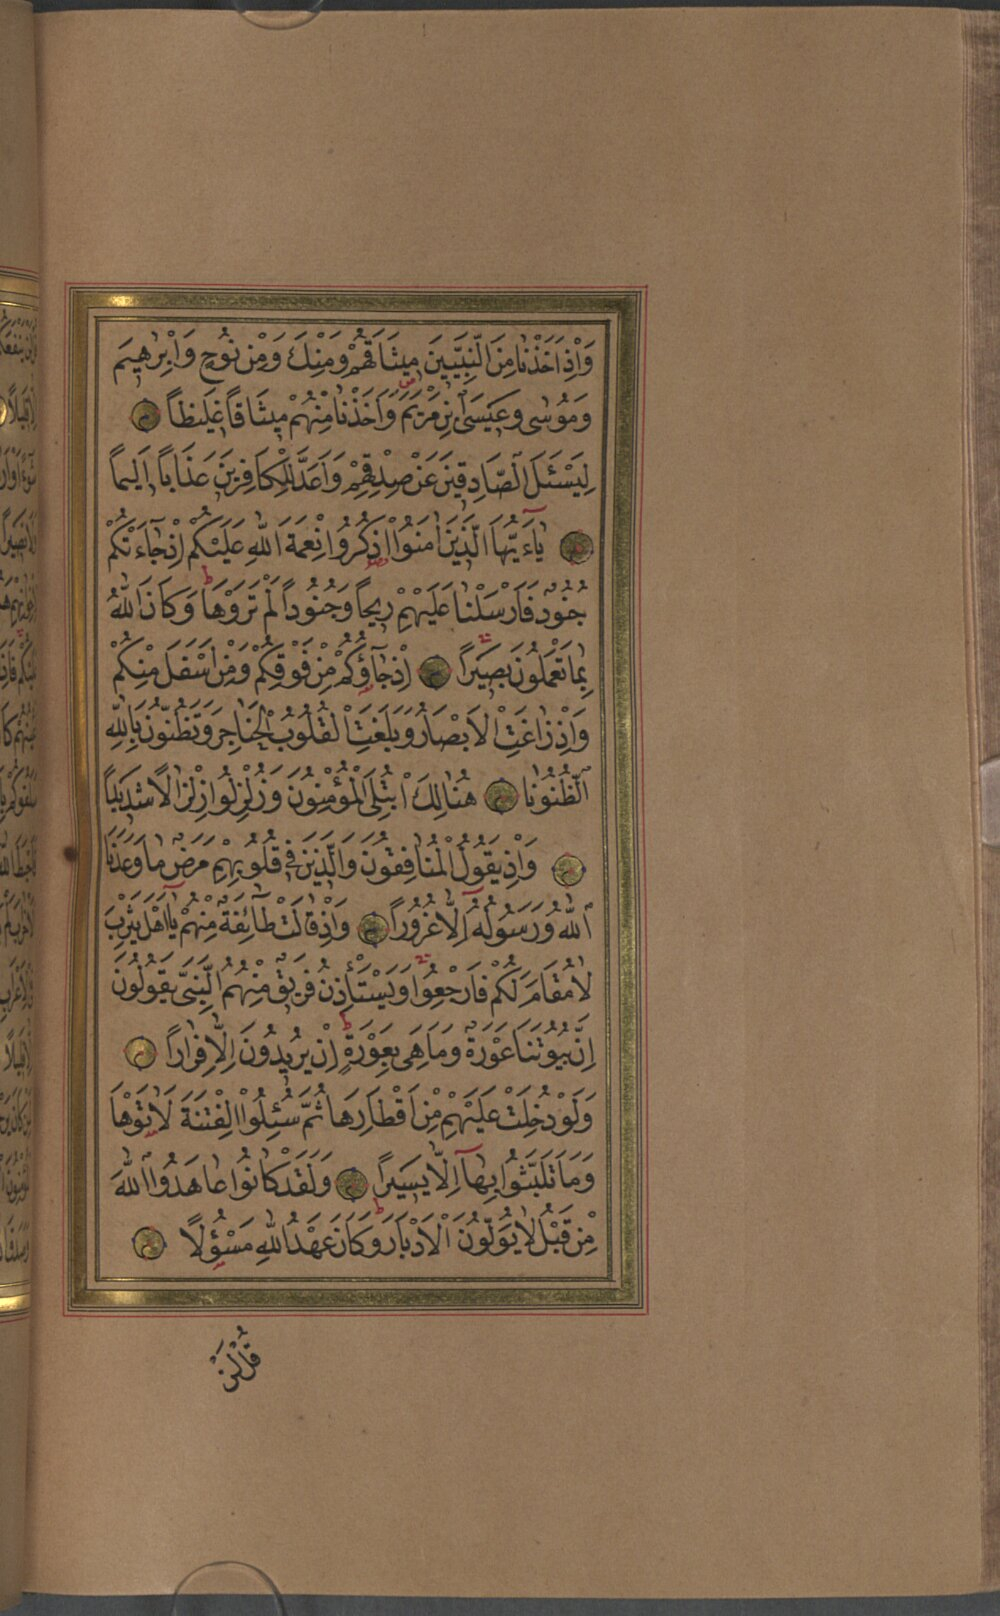 وَاِذْ اَخَذْنَا مِنَ النَّبِيّٖنَ مٖيثَاقَهُمْ وَمِنْكَ وَمِنْ نُوحٍ وَاِبْرٰهٖيمَ
وَمُوسٰى وَعٖيسَى ابْنِ مَرْيَمَ وَاَخَذْنَا مِنْهُمْ مٖيثَاقاً غَلٖيظاً
لِيَسْـَٔلَ الصَّادِقٖينَ عَنْ صِدْقِهِمْ وَاَعَدَّ لِلْكَافِرٖينَ عَذَاباً اَلٖيماً
يَٓا اَيُّهَا الَّذٖينَ اٰمَنُوا اذْكُرُوا نِعْمَةَ اللّٰهِ عَلَيْكُمْ اِذْ جَٓاءَتْكُمْ
جُنُودٌ فَاَرْسَلْنَا عَلَيْهِمْ رٖيحاً وَجُنُوداً لَمْ تَرَوْهَا وَكَانَ اللّٰهُ
بِمَا تَعْمَلُونَ بَصٖيراً اِذْ جَٓاؤُكُمْ مِنْ فَوْقِكُمْ وَمِنْ اَسْفَلَ مِنْكُمْ
وَاِذْ زَاغَتِ الْاَبْصَارُ وَبَلَغَتِ الْقُلُوبُ الْحَنَاجِرَ وَتَظُنُّونَ بِاللّٰهِ
الظُّنُونَا هُنَالِكَ ابْتُلِيَ الْمُؤْمِنُونَ وَزُلْزِلُوا زِلْزَالاً شَدٖيداً
وَاِذْ يَقُولُ الْمُنَافِقُونَ وَالَّذٖينَ فٖي قُلُوبِهِمْ مَرَضٌ مَا وَعَدَنَا
اللّٰهُ وَرَسُولُهُٓ اِلَّا غُرُوراً وَاِذْ قَالَتْ طَٓائِفَةٌ مِنْهُمْ يَٓا اَهْلَ يَثْرِبَ
لَا مُقَامَ لَكُمْ فَارْجِعُوا وَيَسْتَأْذِنُ فَرٖيقٌ مِنْهُمُ النَّبِيَّ يَقُولُونَ
اِنَّ بُيُوتَنَا عَوْرَةٌ وَمَا هِيَ بِعَوْرَةٍ اِنْ يُرٖيدُونَ اِلَّا فِرَاراً
وَلَوْ دُخِلَتْ عَلَيْهِمْ مِنْ اَقْطَارِهَا ثُمَّ سُئِلُوا الْفِتْنَةَ لَاٰتَوْهَا
وَمَا تَلَبَّثُوا بِهَٓا اِلَّا يَسٖيراً وَلَقَدْ كَانُوا عَاهَدُوا اللّٰهَ
مِنْ قَبْلُ لَا يُوَلُّونَ الْاَدْبَارَ وَكَانَ عَهْدُ اللّٰهِ مَسْؤُلاً
قُلْ لَنْ